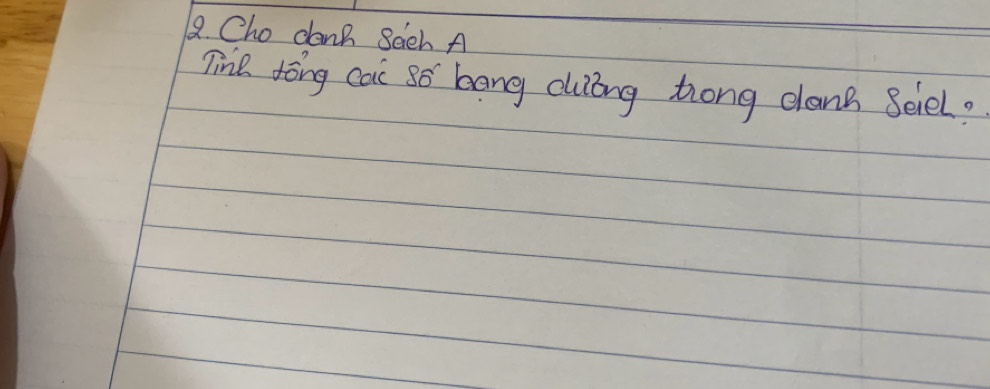 2. Cho danh sách A
Tính tổng các số bạng dương trong danh sách?